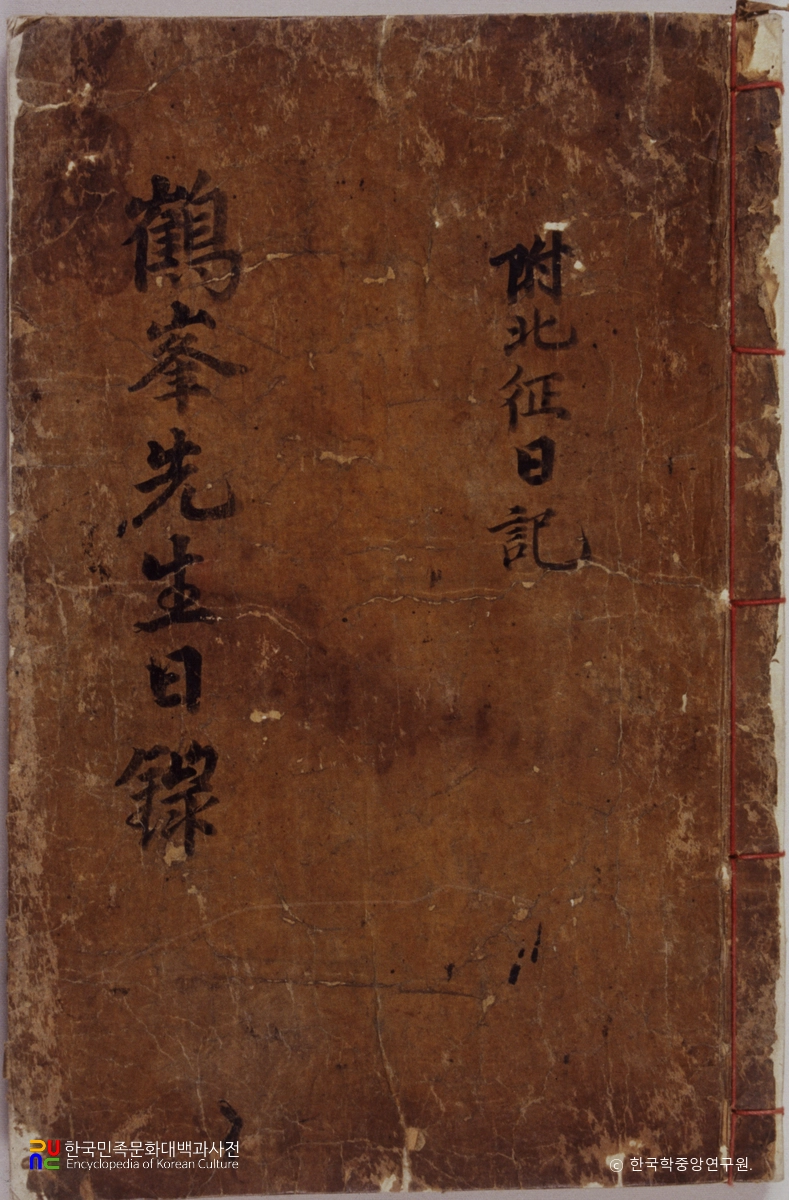 附北征日記
鶴峯先生日錄
한국민족문화대백과사전
Encyclopedia of Korean Culture
© 한국학중앙연구원.